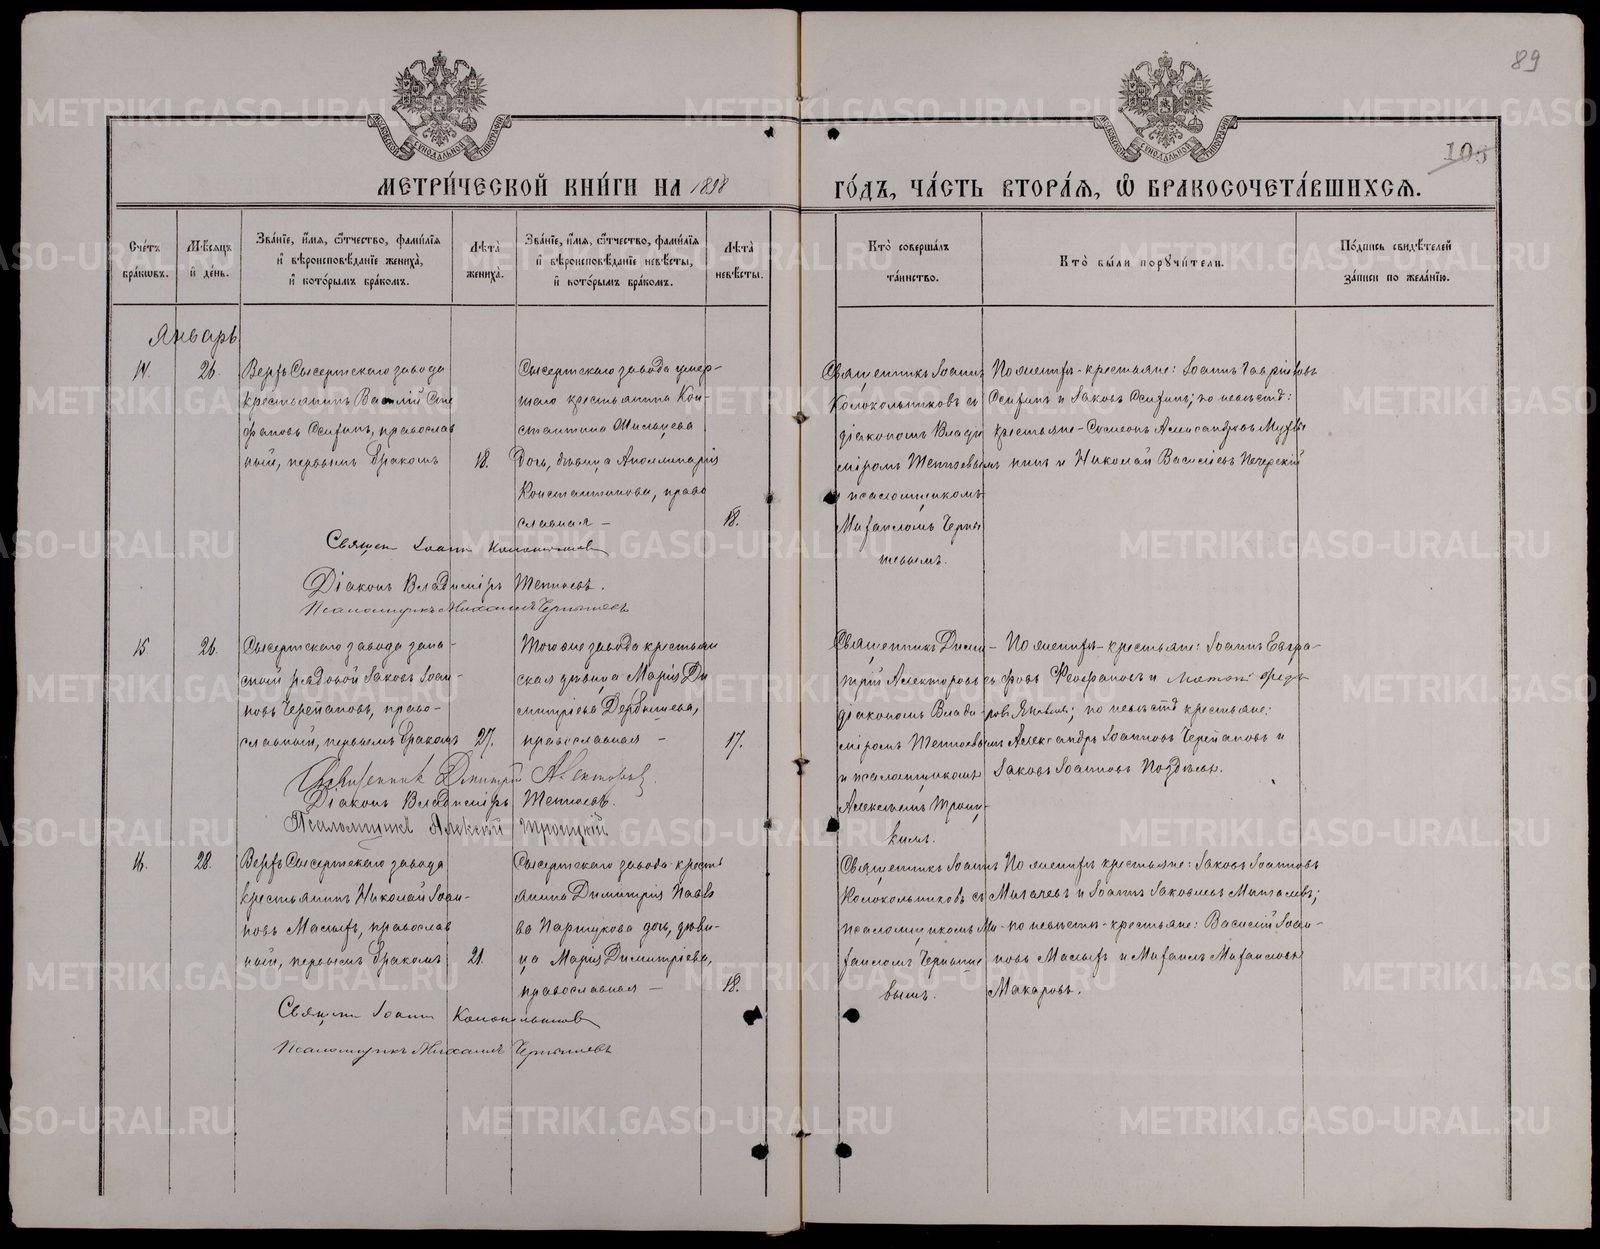 89
105
МЕТРИЧЕСКОЙ КНИГИ НА 1898
ГОДЪ, ЧАСТЬ ВТОРАЯ, Ѿ БРАКОСОЧЕТАВШИХСЯ.
Счетъ браковъ.
Мѣсяцъ и день.
Званіе, имя, отчество, фамилія и вѣроисповѣданіе жениха, и которымъ бракомъ.
Лѣта жениха.
Званіе, имя, отчество, фамилія и вѣроисповѣданіе невѣсты, и которымъ бракомъ.
Лѣта невѣсты.
Кто совершалъ таинство.
Кто были поручители.
Подпись свидѣтелей записи по желанію.
Январь
14.
26.
Верхъ Сысертскаго завода
крестьянинъ Василій Сте
фановъ Осипъ, православ
ный, первымъ бракомъ
18.
Сысертскаго завода умер-
шаго крестьянина Кон-
стантина
дочь, дѣвица Аполлинарія
Константинова, право
славная –
18.
Священникъ Іоаннъ
Колокольниковъ съ
діакономъ Влади
міромъ
и псаломщикомъ
Михаиломъ Черны
шевымъ.
По женихѣ - крестьяне: Іоаннъ Гавріиловъ
и Іаковъ по невѣстѣ:
крестьяне - Симеонъ Александровъ
и Николай Василіевъ Печерскій
Священ Іоаннъ Колокольниковъ
Діаконъ Владиміръ
Псаломщикъ Михаилъ Чернышевъ
15
26.
Сысертскаго завода запа-
сный рядовой Іаковъ Іоан-
новъ Черепановъ, право-
славный, первымъ бракомъ
27.
Тогоже завода крестьян
ская дѣвица Марія Ди
митріева Дербышева,
православная –
17.
Священникъ Дими-
трій Алекторовъ съ
діакономъ Влади-
міромъ
и псаломщикомъ
Алексѣемъ Троиц-
кимъ.
По женихѣ - крестьяне: Іоаннъ Евгра-
фовъ Феофановъ и
по невѣстѣ крестьяне:
Александръ Іоанновъ Черепановъ и
Іаковъ Іоанновъ
Священникъ Дмитрій Алекторовъ.
Діаконъ Владиміръ
Псаломщикъ Алексѣй Троицкій
16.
28.
Верхъ Сысертскаго завода
крестьянинъ Николай Іоан-
новъ Малыхъ, православ
ный, первымъ бракомъ
21.
Сысертскаго завода кресть
янина Димитрія Павло
ва Паршукова дочь, дѣви-
ца Марія Димитріева,
православная –
18.
Священникъ Іоаннъ
Колокольниковъ съ
псаломщикомъ Ми-
хаиломъ Черныше
вымъ.
По женихѣ крестьяне: Іаковъ Іоанновъ
и Іоаннъ Іаковлевъ
по невѣстѣ - крестьяне: Василій Іоан-
новъ Малыхъ и Михаилъ Михаиловъ
Макаровъ.
Священ Іоаннъ Колокольниковъ
Псаломщикъ Михаилъ Чернышевъ
METRIKI.GASO-URAL.RU